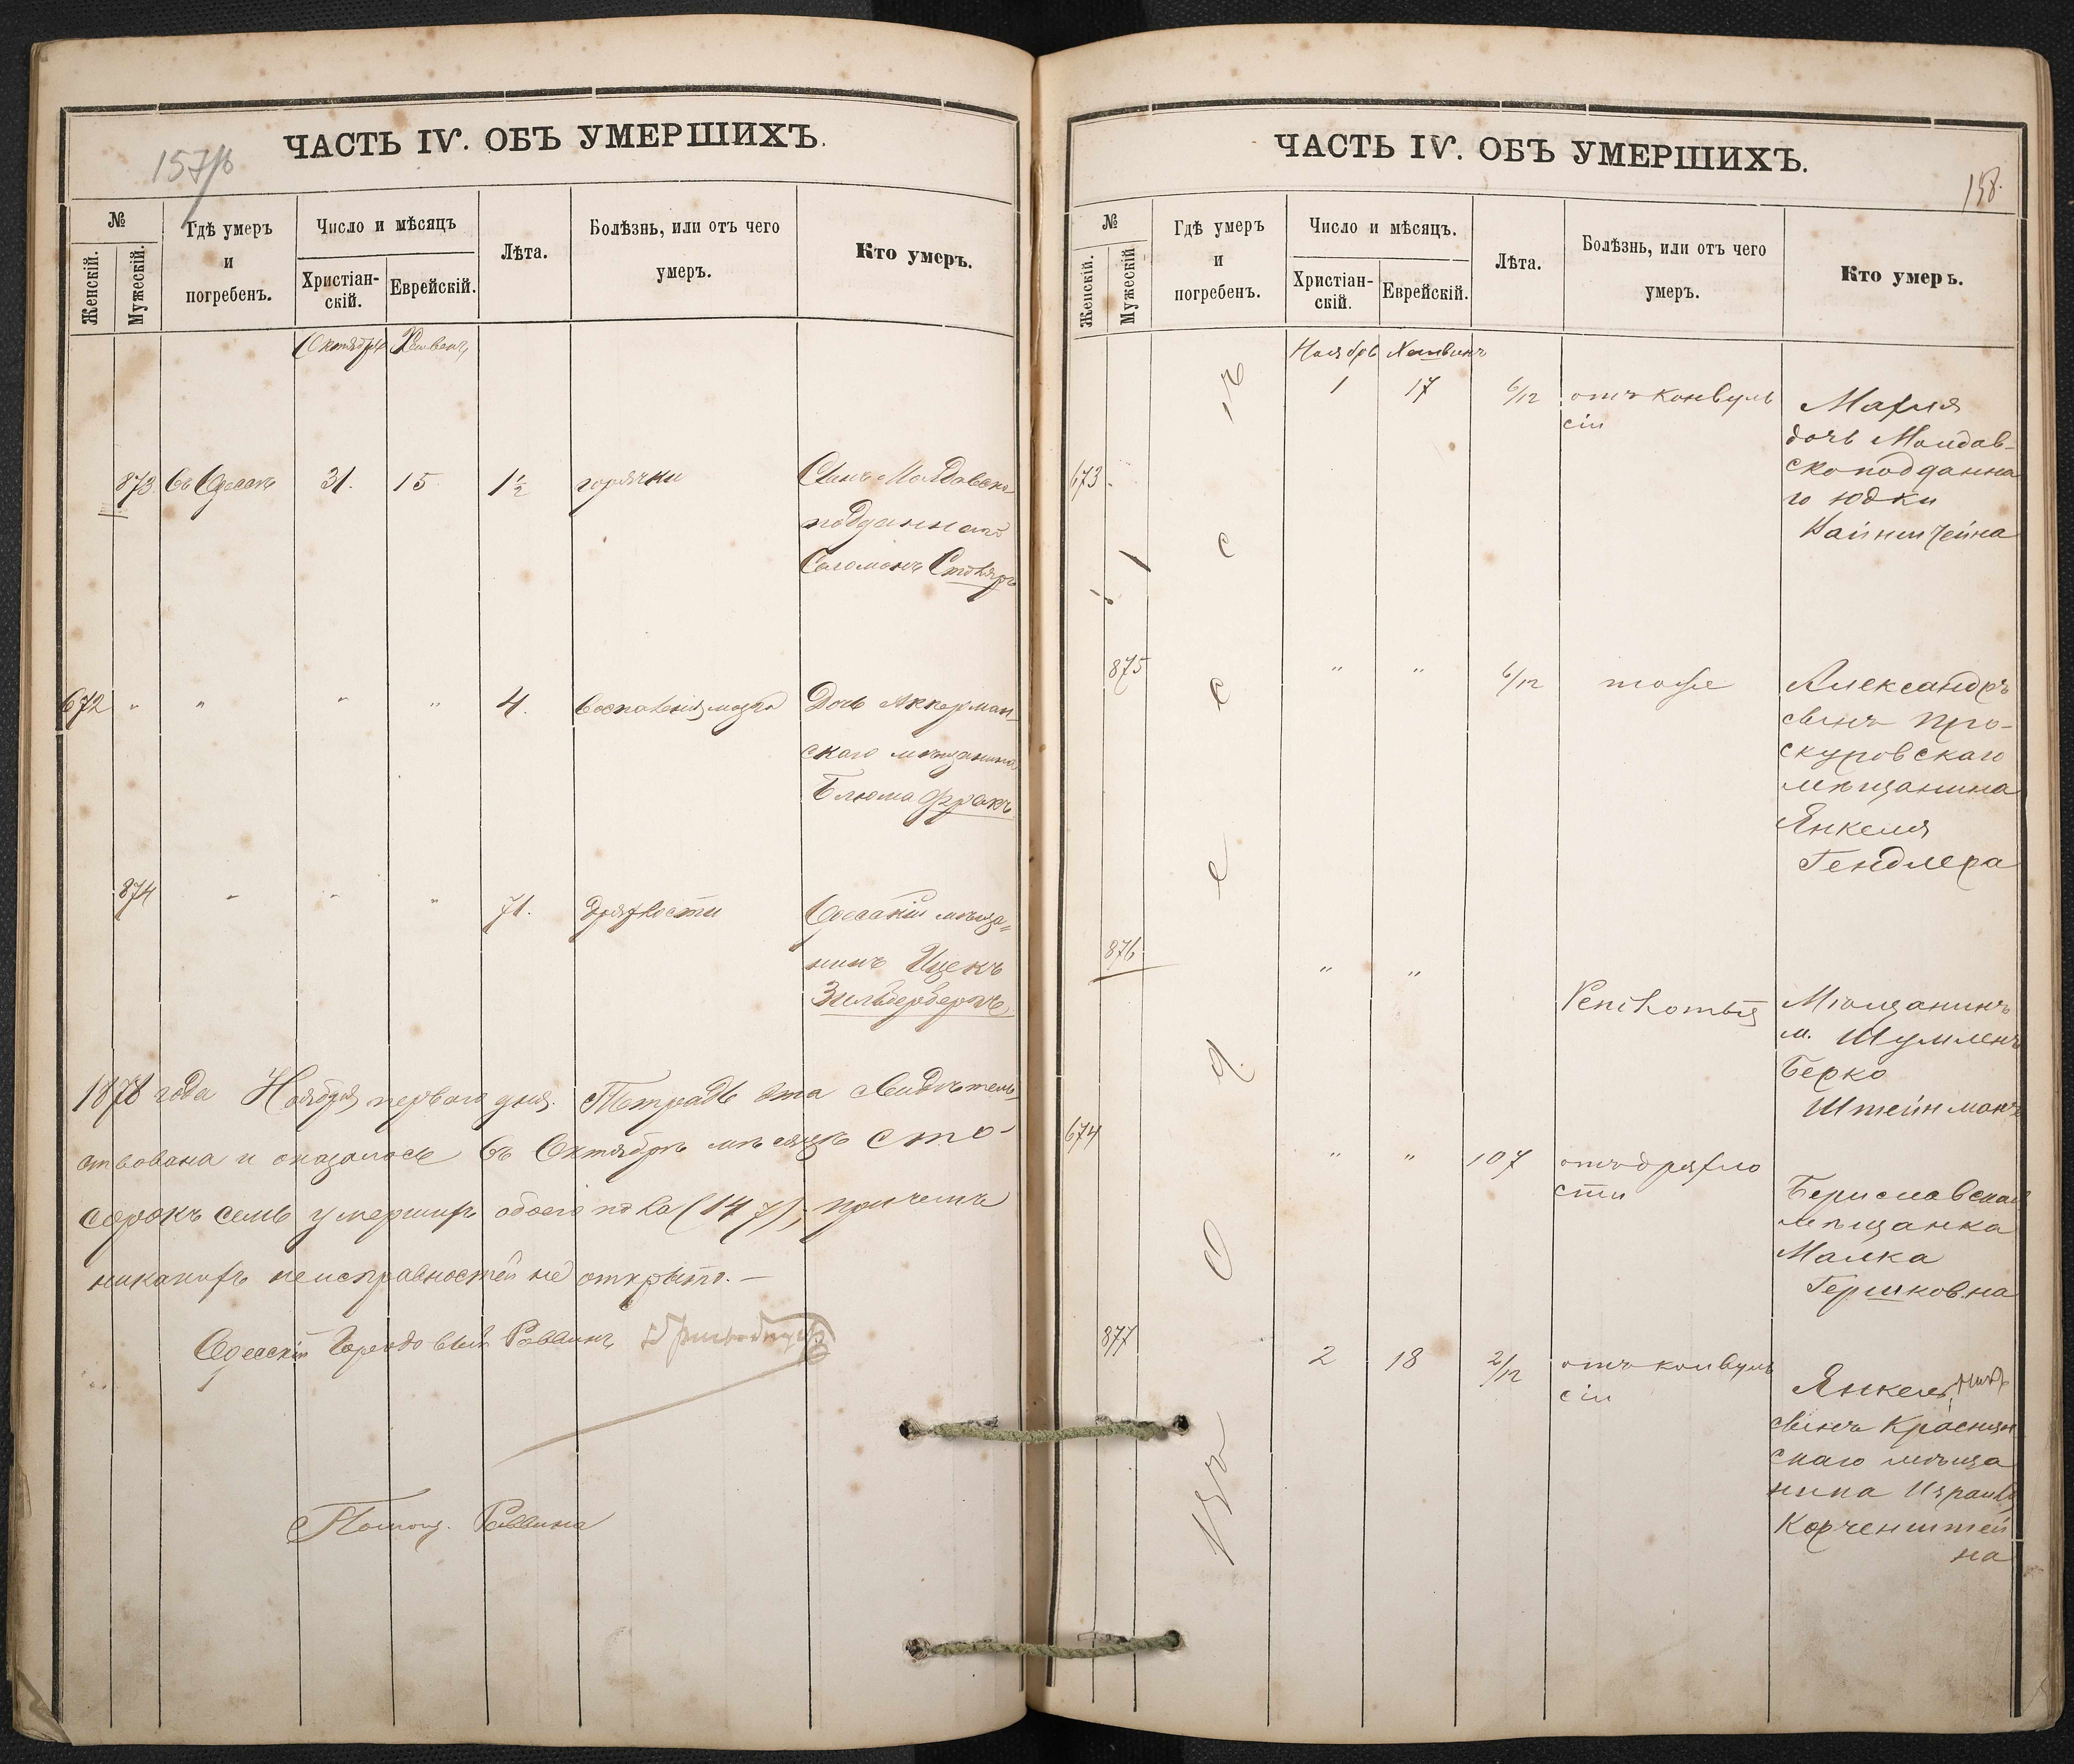 ЧАСТЬ IV. ОБЪ УМЕРШИХЪ.
157/б
№
Женскій.
Мужескій.
Гдѣ умеръ
и
погребенъ.
Число и мѣсяцъ
Христіан-
скій.
Еврейскій.
Лѣта.
Болѣзнь, или отъ чего
умеръ.
Кто умеръ.
Октябрь Хешвенъ
873 Въ Одессѣ 31. 15 1½ горячки Сынъ Молдавско
подданнаго
Соломонъ Столяръ
672 " " " " 4. Воспаленія мозга Дочь Аккерман-
скаго мѣщанина
Блюма Франкъ
874 " " " 71. Дряхлости Одесскій мѣща-
нинъ Ицекъ
Зильберберъ
1878 года Ноября перваго дня. Тетрадь эта свидѣтель-
ствована и оказалось въ Октябрѣ мѣсяцѣ сто
сорокъ семь умершихъ обоего пола (147), причемъ
никакихъ неисправностей не открыто. —
Одесскій Городовый Раввинъ
Помощ. Раввина
ЧАСТЬ IV. ОБЪ УМЕРШИХЪ.
158.
№
Женскій.
Мужескій
Гдѣ умеръ
и
погребенъ.
Число и мѣсяцъ.
Христіан-
скій.
Еврейскій.
Лѣта.
Болѣзнь, или отъ чего
умеръ.
Кто умеръ.
Ноябрь Хешвинъ
Въ Одессѣ
673 1 17 6/12 отъ конвуль
сіи
Марія
дочь Молдав-
скоподданна
го Юдки
Вайнштейна
875 " " 6/12 тоже Александръ
сынъ Про-
скуровскаго
мѣщанина
Янкеля
Гендлера
876 " " Мѣщанинъ
м. Шумленъ
Берко
Штейнманъ
674 " " 107 отъ дряхло
сти
Бериславская
мѣщанка
Малка
Гершковна
877 2 18 2/12 отъ конвуль
сіи
Янкель
сынъ Краснян
скаго мѣща
нина Израиля
Корченштей
на